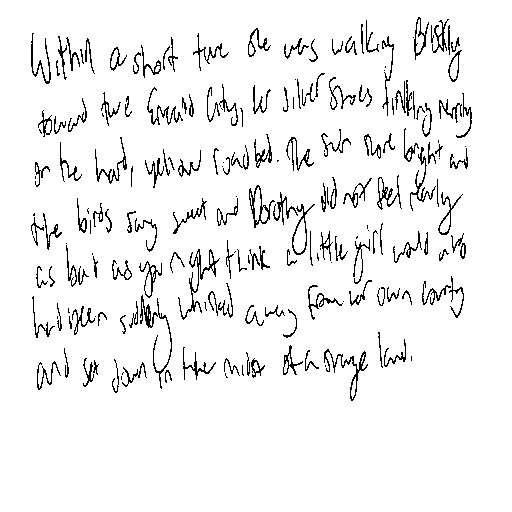 Within a short time she was walking briskly
toward the Emerald City, her silver shoes tinkling merrily
on the hard, yellow roadbed. The sun shone bright and
the birds sang sweet and Dorothy did not feel nearly
as bad as you might think a little girl would who
had been suddenly whisked away from her own country
and set down in the midst of a strange land.